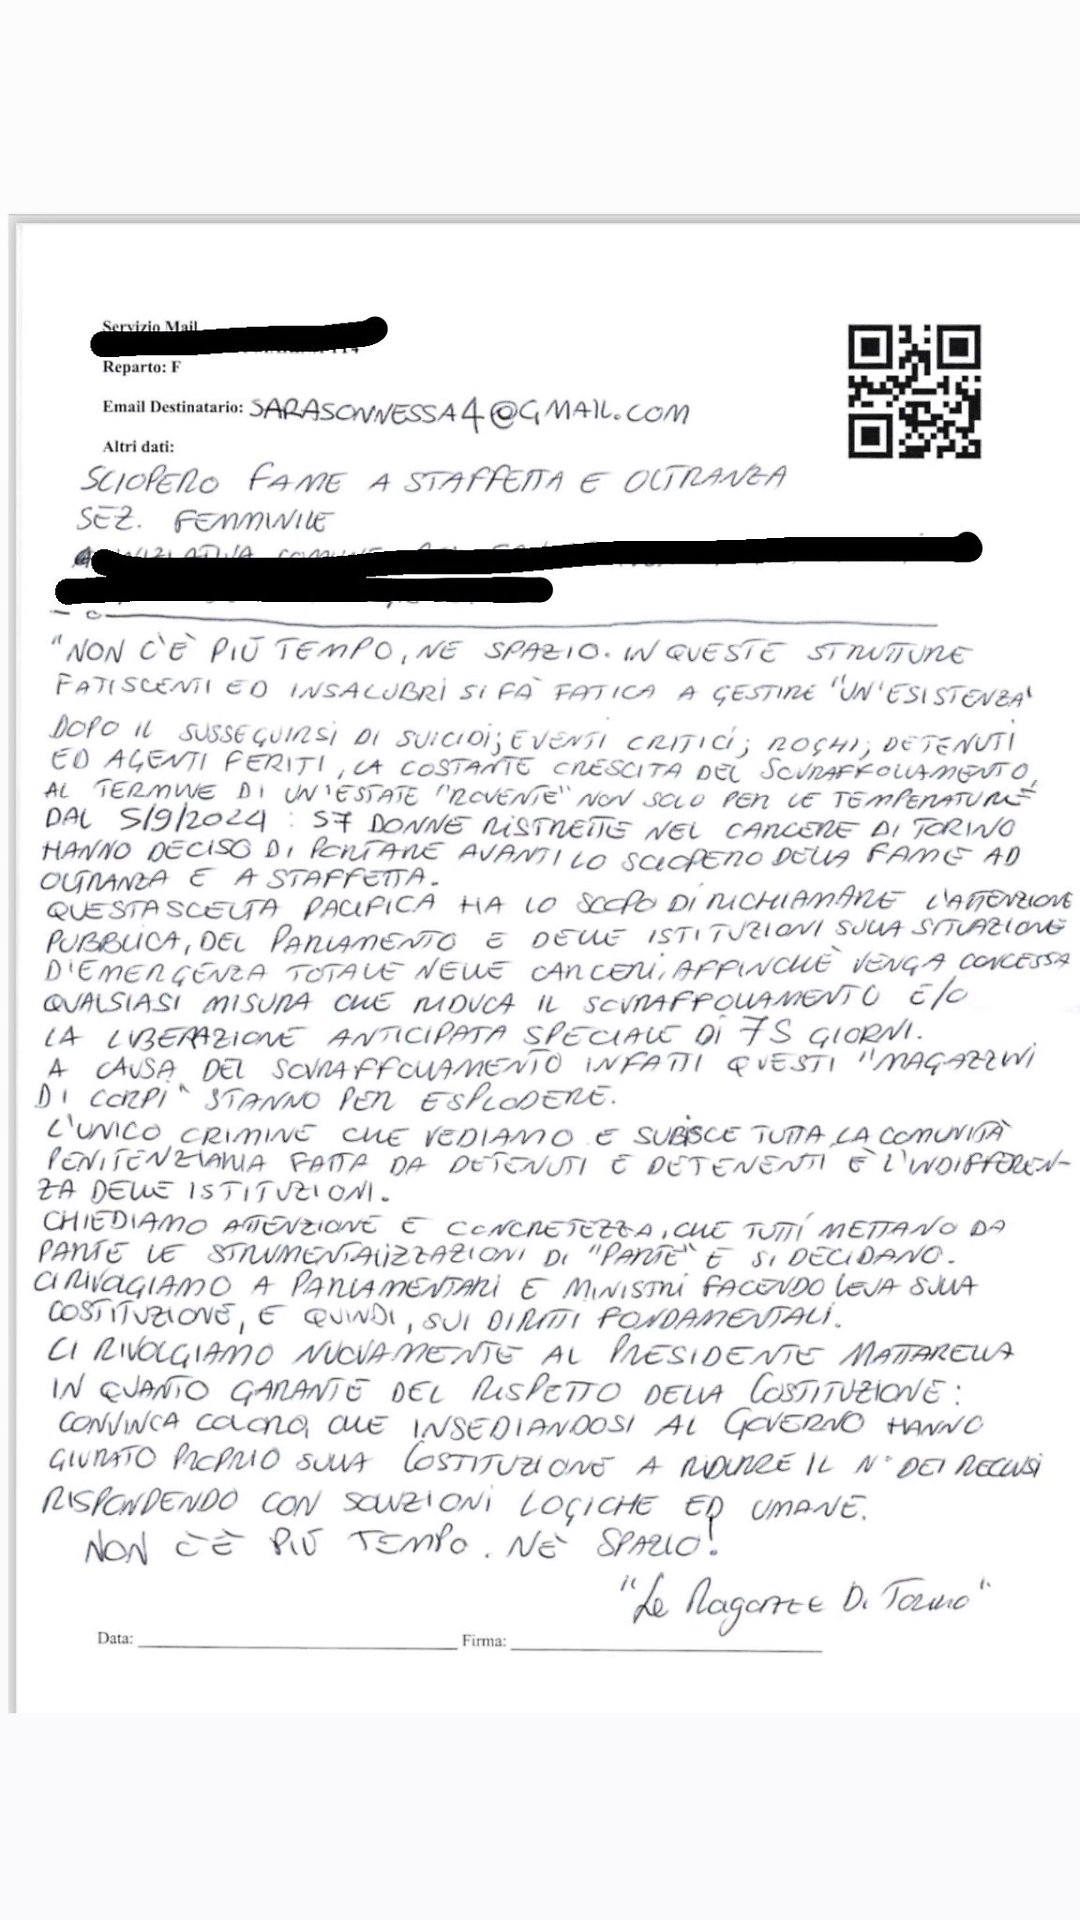 Servizio Mail
Reparto: F
Email Destinatario: SARASONNESSA4@GMAIL.COM
Altri dati:
SCIOPERO FAME A STAFFETTA E OLTRANZA
SEZ. FEMMINILE
"NON C'È PIÙ TEMPO, NE SPAZIO. IN QUESTE STRUTTURE
FATISCENTI ED INSALUBRI SI FÀ FATICA A GESTIRE "UN'ESISTENZA"
DOPO IL SUSSEGUIRSI DI SUICIDI; EVENTI CRITICI; ROGHI; DETENUTI
ED AGENTI FERITI, LA COSTANTE CRESCITA DEL SOVRAFFOLLAMENTO,
AL TERMINE DI UN'ESTATE "ROVENTE" NON SOLO PER LE TEMPERATURE
DAL 5/9/2024 : 57 DONNE RISTRETTE NEL CARCERE DI TORINO
HANNO DECISO DI PORTARE AVANTI LO SCIOPERO DELLA FAME AD
OLTRANZA E A STAFFETTA.
QUESTA SCELTA PACIFICA HA LO SCOPO DI RICHIAMARE L'ATTENZIONE
PUBBLICA, DEL PARLAMENTO E DELLE ISTITUZIONI SULLA SITUAZIONE
D'EMERGENZA TOTALE NELLE CARCERI, AFFINCHÈ VENGA CONCESSA
QUALSIASI MISURA CHE RIDUCA IL SOVRAFFOLLAMENTO E/O
LA LIBERAZIONE ANTICIPATA SPECIALE DI 75 GIORNI.
A CAUSA DEL SOVRAFFOLLAMENTO INFATTI QUESTI "MAGAZZINI
DI CORPI" STANNO PER ESPLODERE.
L'UNICO CRIMINE CHE VEDIAMO E SUBISCE TUTTA LA COMUNITÀ
PENITENZIARIA FATTA DA DETENUTI E DETENENTI È L'INDIFFEREN-
ZA DELLE ISTITUZIONI.
CHIEDIAMO ATTENZIONE E CONCRETEZZA, CHE TUTTI METTANO DA
PARTE LE STRUMENTALIZZAZIONI DI "PARTE" E SI DECIDANO.
CI RIVOLGIAMO A PARLAMENTARI E MINISTRI FACENDO LEVA SULLA
COSTITUZIONE, E QUINDI, SUI DIRITTI FONDAMENTALI.
CI RIVOLGIAMO NUOVAMENTE AL PRESIDENTE MATTARELLA
IN QUANTO GARANTE DEL RISPETTO DELLA COSTITUZIONE:
CONVINCA COLORO, CHE INSEDIANDOSI AL GOVERNO HANNO
GIURATO PROPRIO SULLA COSTITUZIONE A RIDURRE IL N° DEI RECLUSI
RISPONDENDO CON SOLUZIONI LOGICHE ED UMANE.
NON C'È PIÙ TEMPO. NÈ SPAZIO!
"Le Ragazze Di Torino"
Data: Firma: